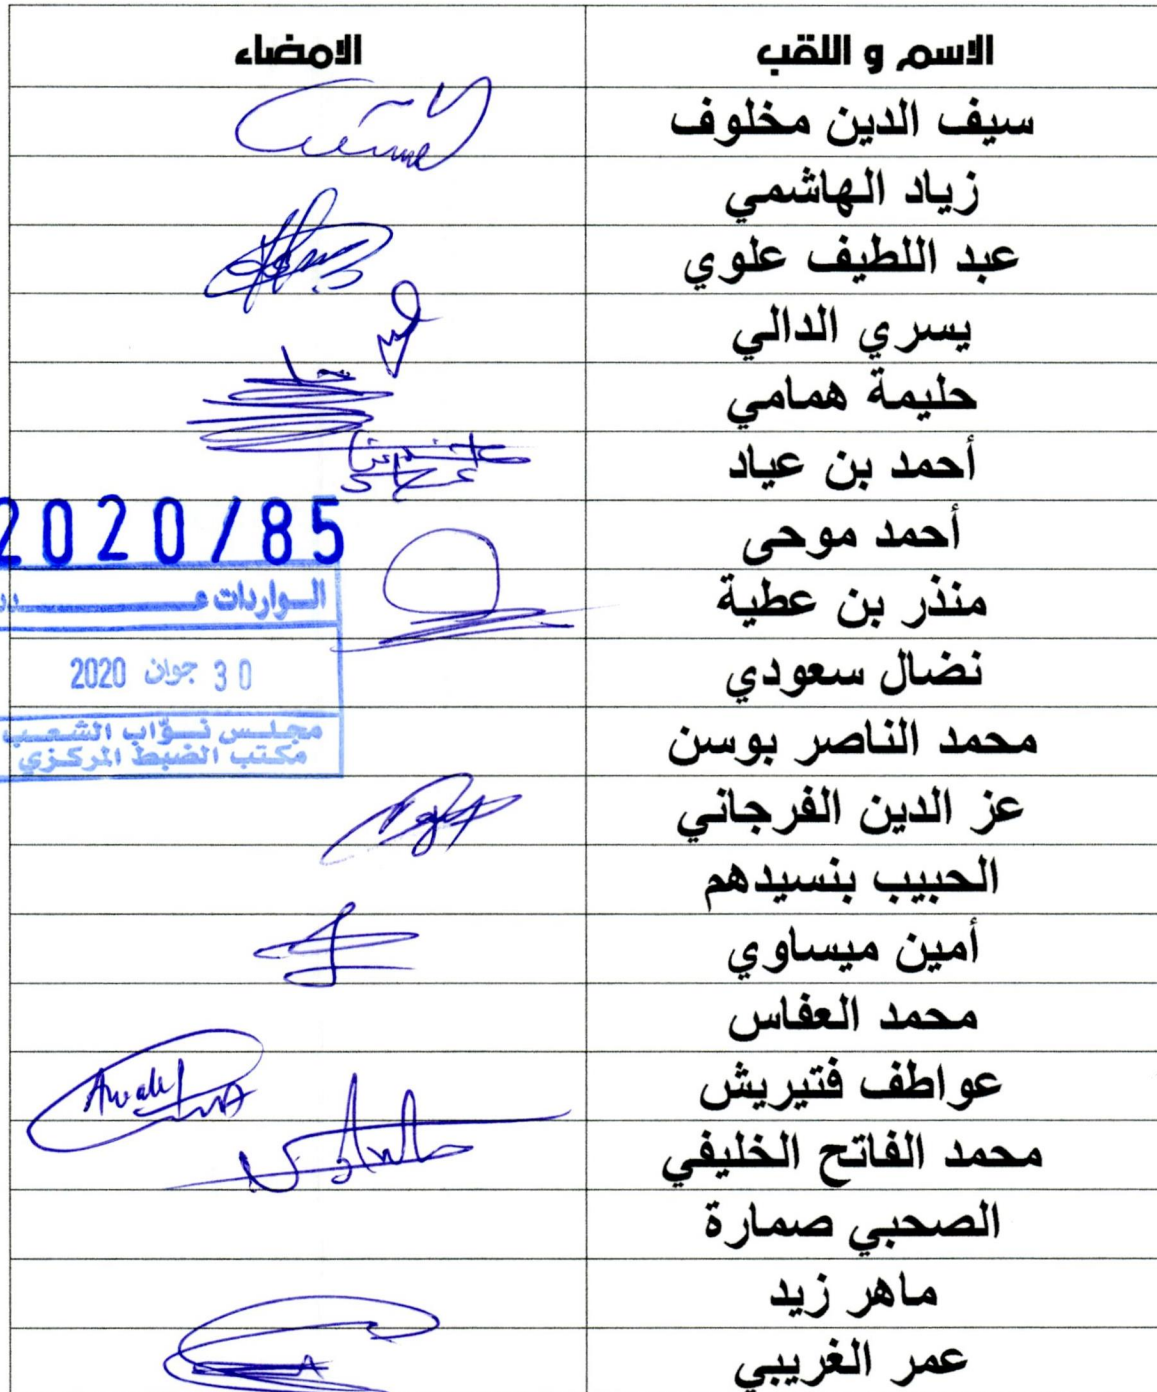 الاسم و اللقب
الامضاء
سيف الدين مخلوف
زياد الهاشمي
عبد اللطيف علوي
يسري الدالي
حليمة همامي
أحمد بن عياد
أحمد موحى
منذر بن عطية
نضال سعودي
محمد الناصر بوسن
عز الدين الفرجاني
الحبيب بنسيدهم
أمين ميساوي
محمد العفاس
عواطف فتيريش
محمد الفاتح الخليفي
الصحبي صمارة
ماهر زيد
عمر الغريبي
2020/85
الـواردات عـــــدد
30 جوان 2020
مجلـس نــوّاب الشعـب
مكتب الضبط المركـزي